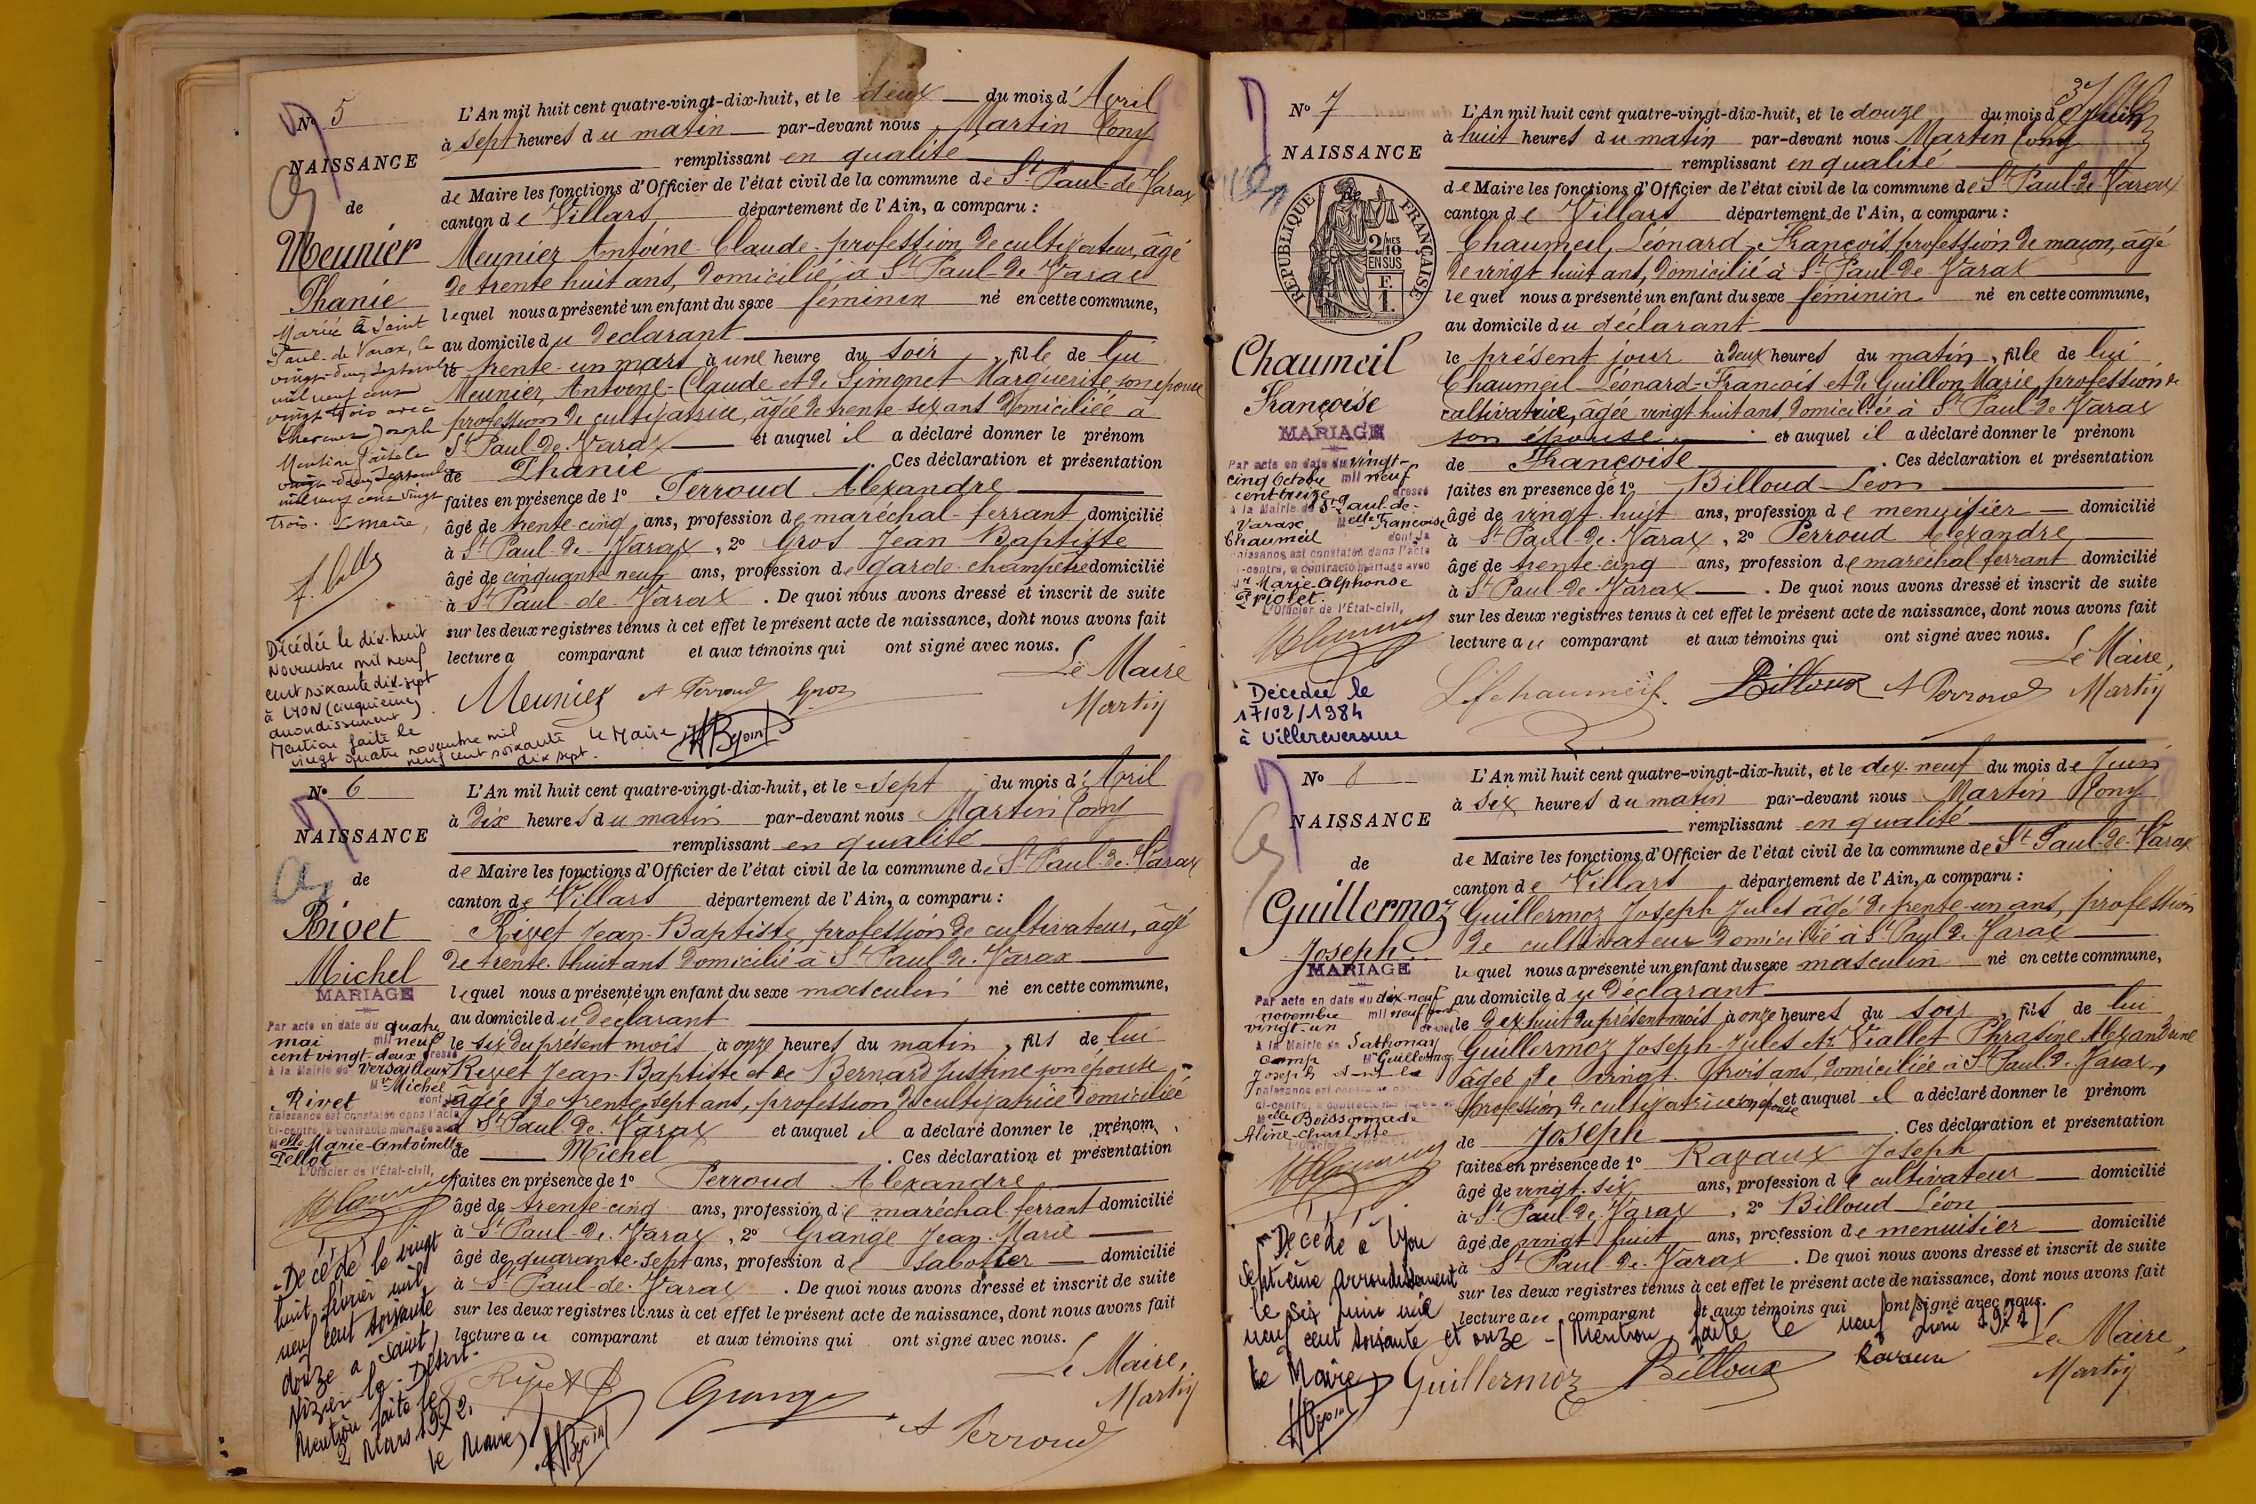 N° 5
NAISSANCE
de
Meunier
Phanie
Mariée à Saint
Paul-de Varax, le
vingt-deux Septembre
mil neuf cent
vingt trois avec
Joseph
Mention faite le
vingt-deux Septembre
mil neuf cent vingt
trois. Le maire,
Décédée le dix-huit
Novembre mil neuf
cent soixante dix-sept
à LYON (cinquième)
arrondissement
Mention faite le
vingt quatre novembre mil
neuf cent soixante
dix sept. le Maire
L'An mil huit cent quatre-vingt-dix-huit, et le deux du mois d'Avril
à sept heures du matin par-devant nous Martin Tony
remplissant en qualité
de Maire les fonctions d'Officier de l'état civil de la commune de St Paul-de Varax
canton de Villars département de l'Ain, a comparu :
Meunier Antoine-Claude profession de cultivateur, âgé
de trente huit ans, domicilié à St Paul-de Varax
lequel nous a présenté un enfant du sexe féminin né en cette commune,
au domicile du déclarant
le trente-un mars à une heure du soir, fille de lui
Meunier Antoine-Claude et de Simonet Marguerite son épouse
profession de cultivatrice, âgée de trente-six ans domiciliée à
St Paul-de-Varax et auquel il a déclaré donner le prénom
de Phanie. Ces déclaration et présentation
faites en présence de 1° Perroud Alexandre
âgé de trente-cinq ans, profession de maréchal-ferrant domicilié
à St Paul-de-Varax, 2° Gros Jean Baptiste
âgé de cinquante neuf ans, profession de garde-champêtre domicilié
à St Paul-de-Varax. De quoi nous avons dressé et inscrit de suite
sur les deux registres tenus à cet effet le présent acte de naissance, dont nous avons fait
lecture a comparant et aux témoins qui ont signé avec nous.
Le Maire
Meunier A Perroud Gros Martin
N° 6
NAISSANCE
de
Rivet
Michel
MARIAGE
Par acte en date du quatre
mai mil neuf
cent vingt-deux dressé
à la Mairie de Versailleux
Mr Michel
Rivet dont la
naissance est constatée dans l'acte
ci-contre, a contracté mariage avec
Melle Marie-Antoinette
Pellot
L'Officier de l'Etat-civil,
Décédé le vingt
huit février mil
neuf cent soixante
douze à Saint
Nizier-le-Désert.
Mention faite le
2 Mars 1972.
le Maire
L'An mil huit cent quatre-vingt-dix-huit, et le sept du mois d'Avril
à dix heures du matin par-devant nous Martin Tony
remplissant en qualité
de Maire les fonctions d'Officier de l'état civil de la commune de St Paul-de-Varax
canton de Villars département de l'Ain, a comparu :
Rivet Jean-Baptiste, profession de cultivateur, âgé
de trente-huit ans domicilié à St Paul-de-Varax
lequel nous a présenté un enfant du sexe masculin né en cette commune,
au domicile du déclarant
le six du présent mois à onze heures du matin, fils de lui
Rivet Jean-Baptiste et de Bernard Justine son épouse
âgée de trente sept ans, profession de cultivatrice domiciliée
à St Paul-de-Varax et auquel il a déclaré donner le prénom
de Michel. Ces déclaration et présentation
faites en présence de 1° Perroud Alexandre
âgé de trente-cinq ans, profession de maréchal ferrant domicilié
à St Paul-de-Varax, 2° Grange Jean-Marie
âgé de quarante-sept ans, profession de sabotier domicilié
à St Paul-de-Varax. De quoi nous avons dressé et inscrit de suite
sur les deux registres tenus à cet effet le présent acte de naissance, dont nous avons fait
lecture au comparant et aux témoins qui ont signé avec nous.
Le Maire,
Rivet Grange A Perroud Martin
N° 7
NAISSANCE
de
RÉPUBLIQUE FRANÇAISE
2/10 MES EN SUS
F. 1.
Chaumeil
Françoise
MARIAGE
Par acte en date du vingt-
cinq Octobre mil neuf
cent treize dressé
à la Mairie de St Paul-de-
Varax Melle Françoise
Chaumeil dont la
naissance est constatée dans l'acte
ci-contre, a contracté mariage avec
Mr Marie-Alphonse
Priolet.
L'Officier de l'Etat-civil,
Décédée le
17/02/1984
à Villereversure
L'An mil huit cent quatre-vingt-dix-huit, et le douze du mois de Juin
à huit heures du matin par-devant nous Martin Tony
remplissant en qualité
de Maire les fonctions d'Officier de l'état civil de la commune de St Paul-de Varax
canton de Villars département de l'Ain, a comparu :
Chaumeil, Léonard-François, profession de maçon, âgé
de vingt huit ans, domicilié à St Paul-de Varax
lequel nous a présenté un enfant du sexe féminin né en cette commune,
au domicile du déclarant
le présent jour à deux heures du matin, fille de lui
Chaumeil Léonard-François et de Guillon Marie, profession de
cultivatrice, âgée vingt huit ans, domiciliée à St Paul-de Varax
son épouse et auquel il a déclaré donner le prénom
de Françoise. Ces déclaration et présentation
faites en présence de 1° Billoud Léon
âgé de vingt-huit ans, profession de menuisier domicilié
à St Paul-de-Varax, 2° Perroud Alexandre
âgé de trente-cinq ans, profession de maréchal ferrant domicilié
à St Paul-de-Varax. De quoi nous avons dressé et inscrit de suite
sur les deux registres tenus à cet effet le présent acte de naissance, dont nous avons fait
lecture au comparant et aux témoins qui ont signé avec nous.
Le Maire,
Chaumeil Billoux A Perroud Martin
N° 8
NAISSANCE
de
Guillermoz
Joseph
MARIAGE
Par acte en date du dix-neuf
novembre mil neuf cent
vingt-un dressé
à la Mairie de Sathonay
Camp Mr Guillermoz
Joseph dont la
naissance est constatée dans l'acte
ci-contre, a contracté mariage avec
Melle Boissonnade
Aline-Charlotte
Décédé à Lyon
septième arrondissement
le six juin mil
neuf cent soixante et onze - (Mention faite le neuf juin 1971)
le Maire
L'An mil huit cent quatre-vingt-dix-huit, et le dix-neuf du mois de Juin
à six heures du matin par-devant nous Martin Tony
remplissant en qualité
de Maire les fonctions d'Officier de l'état civil de la commune de St Paul-de-Varax
canton de Villars département de l'Ain, a comparu :
Guillermoz Joseph Jules âgé de trente-un ans, profession
de cultivateur domicilié à St Paul-de Varax
lequel nous a présenté un enfant du sexe masculin né en cette commune,
au domicile du déclarant
le dix huit du présent mois à onze heures du soir, fils de lui
Guillermoz Joseph-Jules et de Viallet Phrasine Alexandrine
âgée de vingt-trois ans, domiciliée à St Paul-de-Varax,
profession de cultivatrice son épouse et auquel il a déclaré donner le prénom
de Joseph. Ces déclaration et présentation
faites en présence de 1° Ravaux Joseph
âgé de vingt-six ans, profession de cultivateur domicilié
à St Paul-de-Varax, 2° Billoud Léon
âgé de vingt huit ans, profession de menuisier domicilié
à St Paul-de-Varax. De quoi nous avons dressé et inscrit de suite
sur les deux registres tenus à cet effet le présent acte de naissance, dont nous avons fait
lecture au comparant et aux témoins qui ont signé avec nous.
Le Maire,
Guillermoz Billoux Ravaux Martin